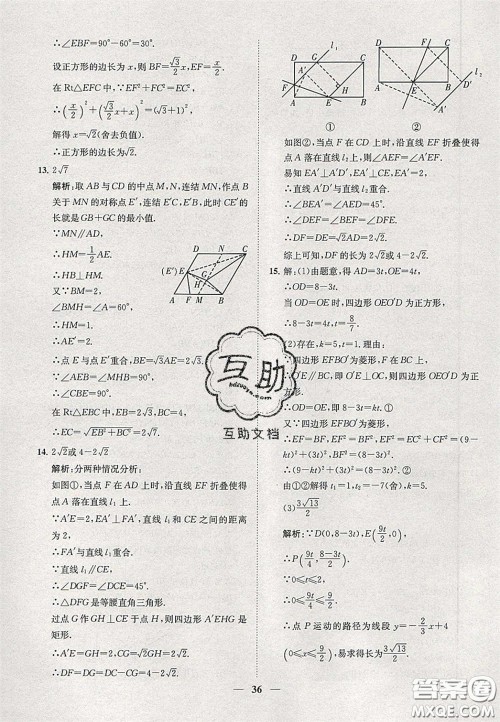 ∴∠EBF=90°-60°=30°.
设正方形的边长为 x,则 BF=√3/2 x,EF=x/2.
在 Rt△EFC 中,EF²+FC²=EC²,
∴(x/2)²+(√3/2 x+x)²=(√3+1)²,
解得 x=√2(舍去负值).
∴正方形的边长为√2.
13. 2√7
解析:取 AB 与 CD 的中点 M,N,连结 MN,作点 B
关于 MN 的对称点 E′,连结 E′C,E′B,此时 CE′的
长就是 GB+GC 的最小值.
∵MN∥AD,
∴HM=1/2 AE.
∵HB⊥HM.
又∵BM=2,
∠BMH=∠A=60°,
∴HM=1.
∴AE′=2.
∴点 E 与点 E′重合,BE=√3AE=2√3.
∵∠AEB=∠MHB=90°.
∴∠CBE=90°.
在 Rt△EBC 中,EB=2√3,BC=4,
∴EC=√(EB²+BC²)=2√7.
14. 2√2或 4-2√2
解析:分两种情况分析:
如图①,当点 F 在 AD 上时,沿直线 EF 折叠使得
点 A 落在直线 l₁ 上.
∵A′E=2,直线 l₁ 和 CE 之间的距离
为 2,
∴FA′与直线 l₁ 重合.
∵直线 l₁∥CE,
∴∠DGF=∠DCE=45°.
∴△DFG 是等腰直角三角形.
过点 G 作 GH⊥CE 于点 H,则四边形 A′EHG 是
矩形.
∴A′E=GH=2,CG=√2GH=2√2.
∴DF=DG=CD-CG=4-2√2.
D G C l₁
F A′ H
A E B
①
D F C l₁
A E B
A′ D′
②
如图②,当点 F 在 CD 上时,沿直线 EF 折叠使得
点 A 落在直线 l₁ 上,则∠FEA=∠A′EF.
易得∠CEA′=90°,
∴直线 A′D′与直线 l₁ 重合.
∴∠DEF=∠DFE.
∴DF=DE=2√2.
综上可知,DF 的长为 2√2或 4-2√2.
15. 解:(1)由题意,得 AD=3t,OE=4t,
∴OD=8-3t.
∵OD=OE 时,四边形 OEO′D 为正方形,
∴8-3t=4t,t=8/7.
(2)存在,k=5,t=1. 理由:
∵四边形 EFBO′为菱形,∴FE∥BO′.
∵FE⊥OE,
∴O′E⊥OE,则四边形 OEO′D 为正方形.
∴OE=OD,即 8-3t=kt. ①
又四边形 EFBO′为菱形,
∴EF=BF,EF=OE=kt,BF=8-3t-2t.
∴kt=8-3t-2t. ②
由①②解得 k=5,t=1.
(3)3√13/2
解析:∵D(0,8-3t),E(9t/2,0),
∴P(9t/4,(8-3t)/2).
∵0≤t≤2,
∴0≤x≤9/2.
∴点 P 运动的路径为线段 y=-2/3 x+4
(0≤x≤9/2).
∴所求得长为3√13/2.
互助
hdzuoye.com
互助文档
36
答案圈
MXQE.COM